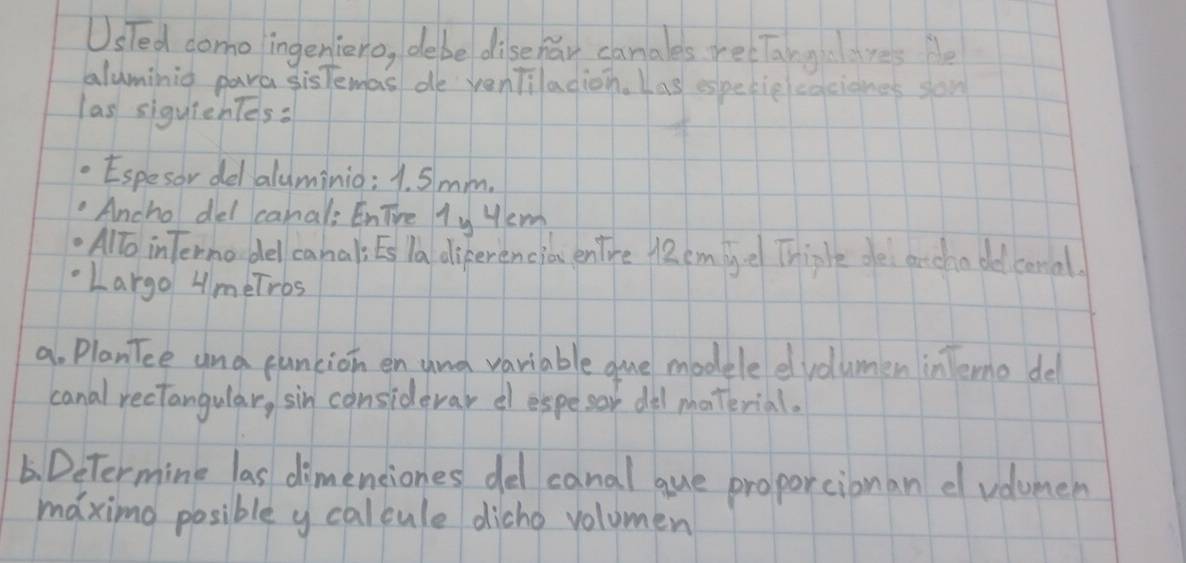 Usted como ingeniero, debe diseñar canales rectangulares de
aluminio para sistemas de ventilación. Las especificaciones son
las siguientes:
• Espesor del aluminio: 1.5 mm.
• Ancho del canal: Entre 1 y 4 cm
• Alto interno del canal: Es la diferencia entre 12 cm y el Triple del ancho del canal.
• Largo 4 metros
a. Plantee una función en una variable que modele el volumen interno del
canal rectangular, sin considerar el espesor del material.
b. Determine las dimenciones del canal que proporcionan el volumen
máximo posible y calcule dicho volumen